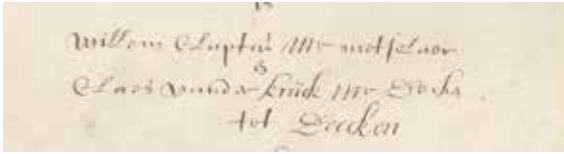 Willem Claptus Mr metselaer
Claes vander kruck Mr Decker
tot Deeken